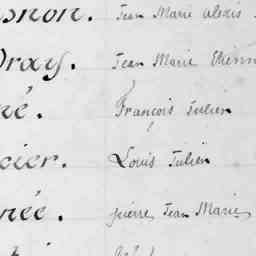 snon. Jean Marie Alexis
Dray. Jean Marie Etienn
né. François Julien
cier. Louis Julien
née. pierre Jean Marie